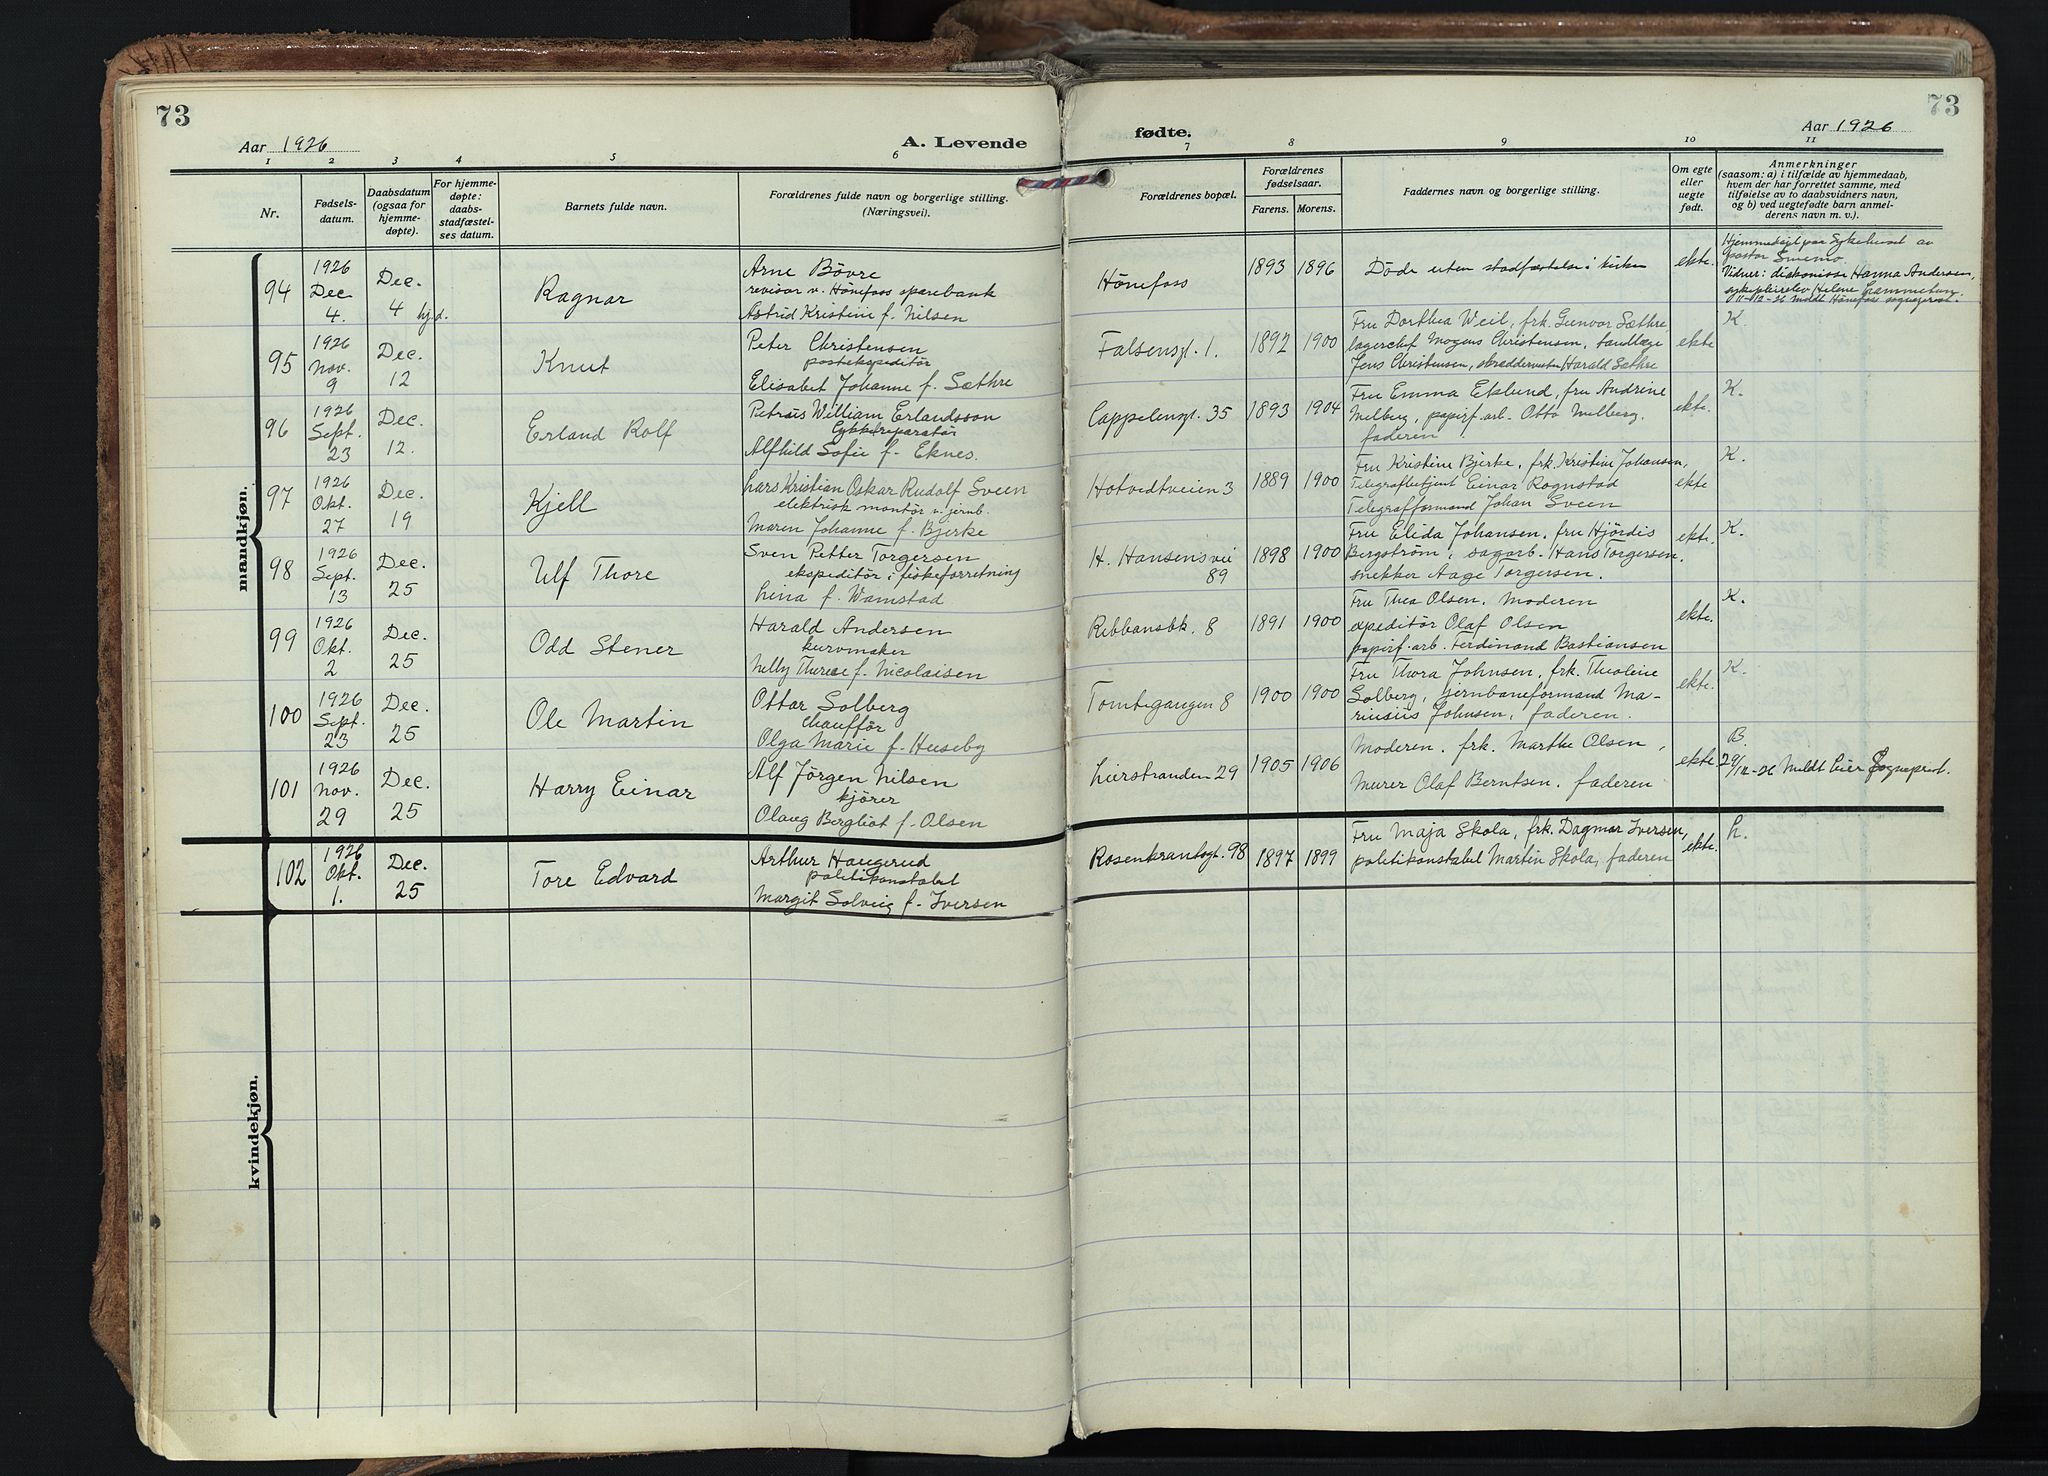 73
Aar 1926
A. Levende
fødte.
Aar 1926
73
1 2 3 4 5 6 7 8 9 10 11
Nr.
Fødsels-
datum.
Daabsdatum
(ogsaa for
hjemme-
døpte).
For hjemme-
døpte:
daabs-
stadfæstel-
ses datum.
Barnets fulde navn.
Forældrenes fulde navn og borgerlige stilling.
(Næringsvei).
Forældrenes bopæl.
Forældrenes
fødselsaar.
Farens. Morens.
Faddernes navn og borgerlige stilling.
Om egte
eller
uegte
født.
Anmerkninger
(saasom: a) i tilfælde av hjemmedaab,
hvem der har forrettet samme, med
tilføielse av to daabsvidners navn,
og b) ved uegtefødte barn anmel-
derens navn m. v.).
mandkjøn.
94
1926
Dec
4.
Dec.
4 hj.d.
Ragnar
Arne Bövre
revisor v. Hönefoss sparebank
Astrid Kristine f. Nilsen
Hönefoss
1893 1896
Döde uten stadfæstelse i kirken
ekte.
Hjemmedöpt paa Sykehuset av
pastor Smemo.
Vidner: diakonisse Hanna Andersen,
sykepleirelev Helene
11-12-26 meldt Hönefoss sogneprest.
95
1926
Nov.
9
Dec.
12
Knut
Peter Christensen
postekspeditör
Elisabet Johanne f. Sæthre
Falsensgt. 1.
1892 1900
Fru Dorthea Weil, frk. Gunvor Sæthre,
lagerchef Mogens Christensen, tandlæge
Jens Christensen, skræddermester Harald Sæthre
ekte
K.
96
1926
Sept.
23
Dec.
12.
Erland Rolf
Petrus William Erlandsson
Cykkelreparatör
Alfhild Sofie f. Eknes.
Cappelensgt. 35
1893 1904
Fru Emma Eklund, fru Andrine
Melberg, papirf.arb. Otto Melberg.
faderen
ekte.
K.
97
1926
Okt.
27
Dec.
19
Kjell
Lars Kristian Oskar Rudolf Sveen
elektrisk montör v. jernb.
Maren Johanne f. Bjerke
Hotvedtveien 3
1889 1900
Fru Kristine Bjerke, frk. Kristine Johansen,
Telegrafbetjent Einar Rognstad
Telegrafformand Johan Sveen
ekte
K.
98
1926
Sept.
13
Dec.
25
Ulf Thore
Sven Petter Torgersen
ekspeditör i fiskeforretning
Lina f. Wamstad
H. Hansensvei
89
1898 1900
Fru Elida Johansen, fru Hjördis
Bergström, sagarb. Hans Torgersen,
snekker Aage Torgersen.
ekte.
K.
99
1926
Okt.
2
Dec.
25
Odd Stener
Harald Andersen
kurvmaker
Nelly Therese f. Nicolaisen
Ribbansbk. 8
1891 1900
Fru Thea Olsen. Moderen
expeditör Olaf Olsen
papirf.arb. Ferdinand Bastiansen
ekte.
K.
100
1926
Sept.
23
Dec.
25
Ole Martin
Ottar Solberg
Chaufför
Olga Marie f. Huseby
Tomtegangen 8
1900 1900
Fru Thora Johnsen, frk. Theoline
Solberg, jernbaneformand Ma-
rinius Johnsen, faderen.
ekte.
K.
101
1926
Nov.
29
Dec.
25
Harry Einar
Alf Jörgen Nilsen
kjörer
Olaug Bergliot f. Olsen
Lierstranden 29
1905 1906
Moderen. frk. Marthe Olsen,
Murer Olaf Berntsen. faderen
ekte
B.
29/12-26 Meldt Lier Sogneprest.
102
1926
Okt.
1.
Dec.
25
Tore Edvard
Arthur Haugerud
politikonstabel
Margit Solveig f. Iversen
Rosenkrantsgt. 98
1897 1899
Fru Maja Skola, frk. Dagmar Iversen,
politikonstabel Martin Skola, faderen
ekte.
L.
kvindekjøn.